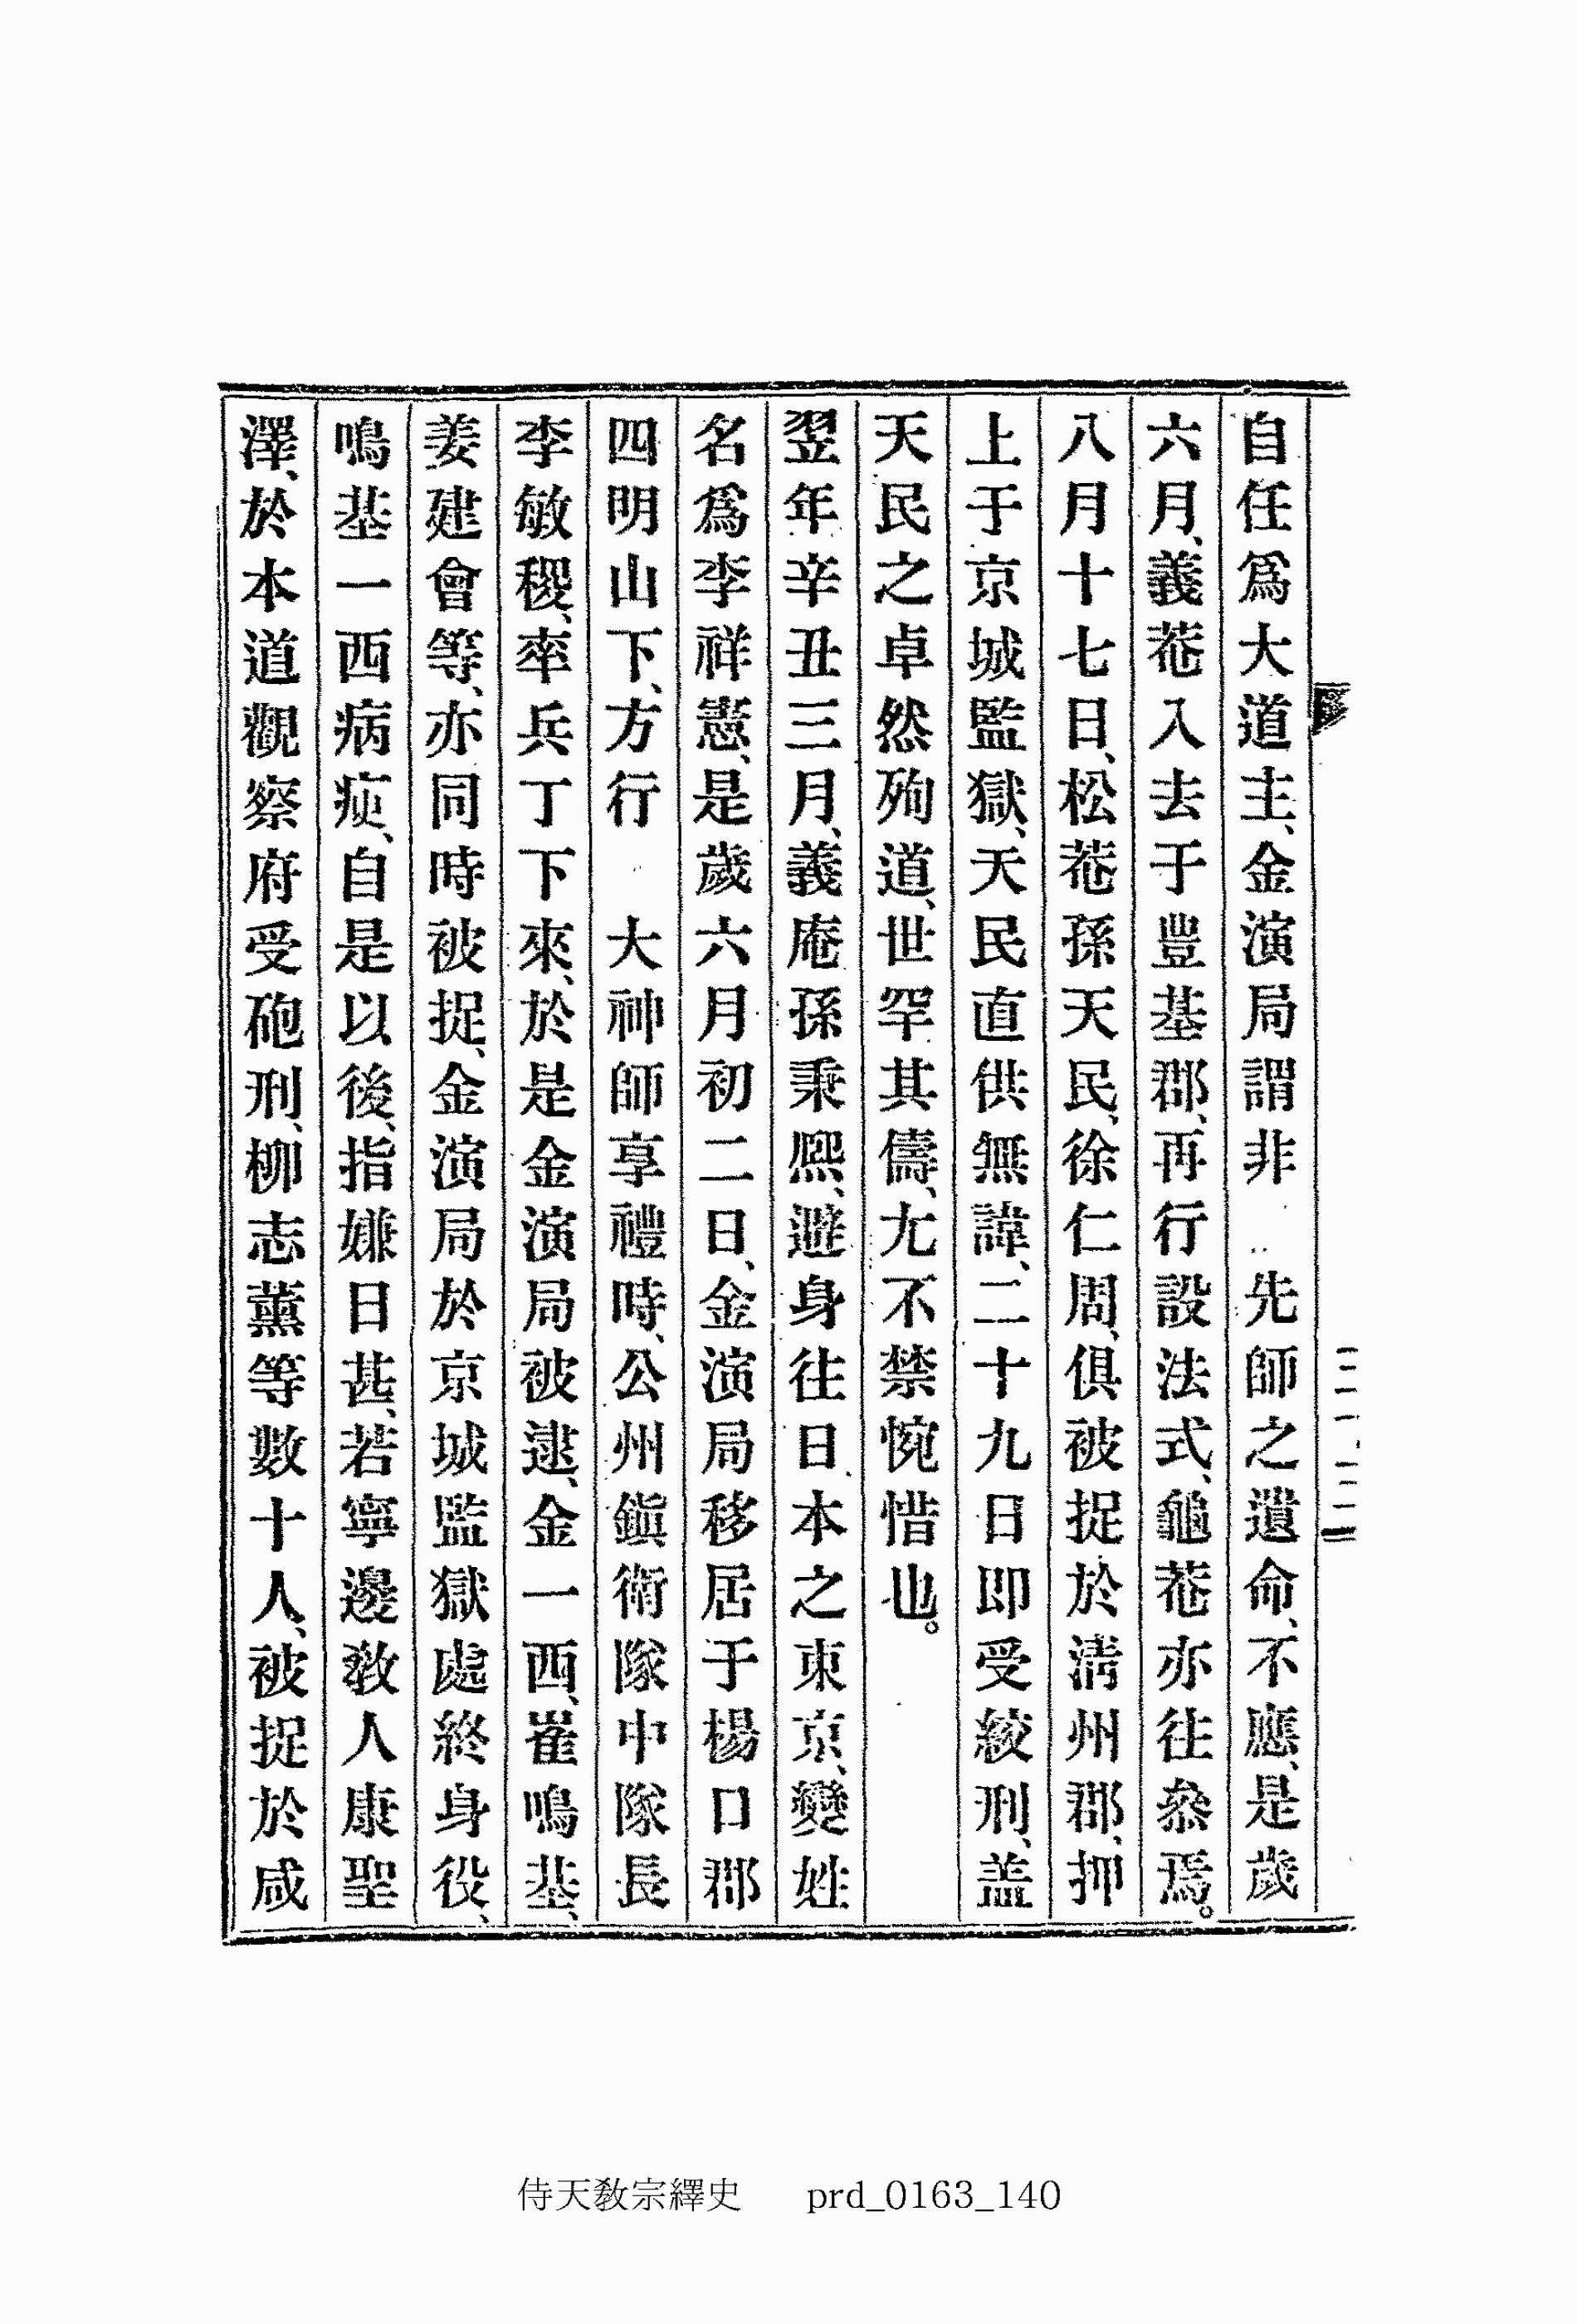 自任爲大道主、金演局謂非　先師之遺命、不應、是歲
六月、義菴入去于豊基郡、再行設法式、龜菴亦往叅焉。
八月十七日、松菴孫天民、徐仁周、俱被捉於淸州郡、押
上于京城監獄、天民直供無諱、二十九日即受絞刑、盖
天民之卓然殉道、世罕其儔、尤不禁惋惜也。
翌年辛丑三月、義庵孫秉熙、避身往日本之東京、變姓
名爲李祥憲、是歲六月初二日、金演局移居于楊口郡
四明山下、方行　大神師享禮時、公州鎭衛隊中隊長
李敏稷、率兵丁下來、於是金演局被逮、金一西、崔鳴基、
姜建會等、亦同時被捉、金演局於京城監獄處終身役、
鳴基一西病瘐、自是以後、指嫌日甚、若寧邊敎人康聖
澤、於本道觀察府受砲刑、柳志薰等數十人、被捉於咸
侍天敎宗繹史　prd_0163_140